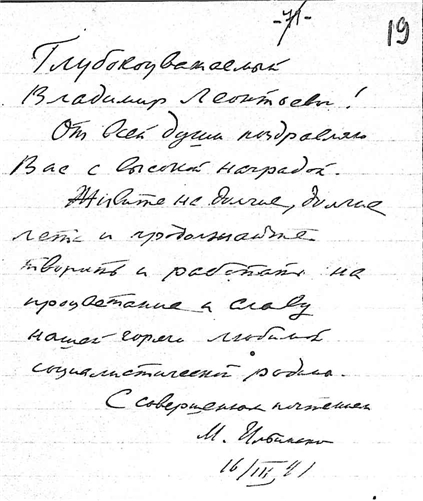 -71-
19
Глубокоуважаемый
Владимир Леонтьевич!
От всей души поздравляю
Вас с высокой наградой.
Живите на долгие, долгие
лета и продолжайте
творить и работать на
процветание и славу
нашей горячо любимой
социалистической родины.
С совершенным почтением
М.
16/III 41